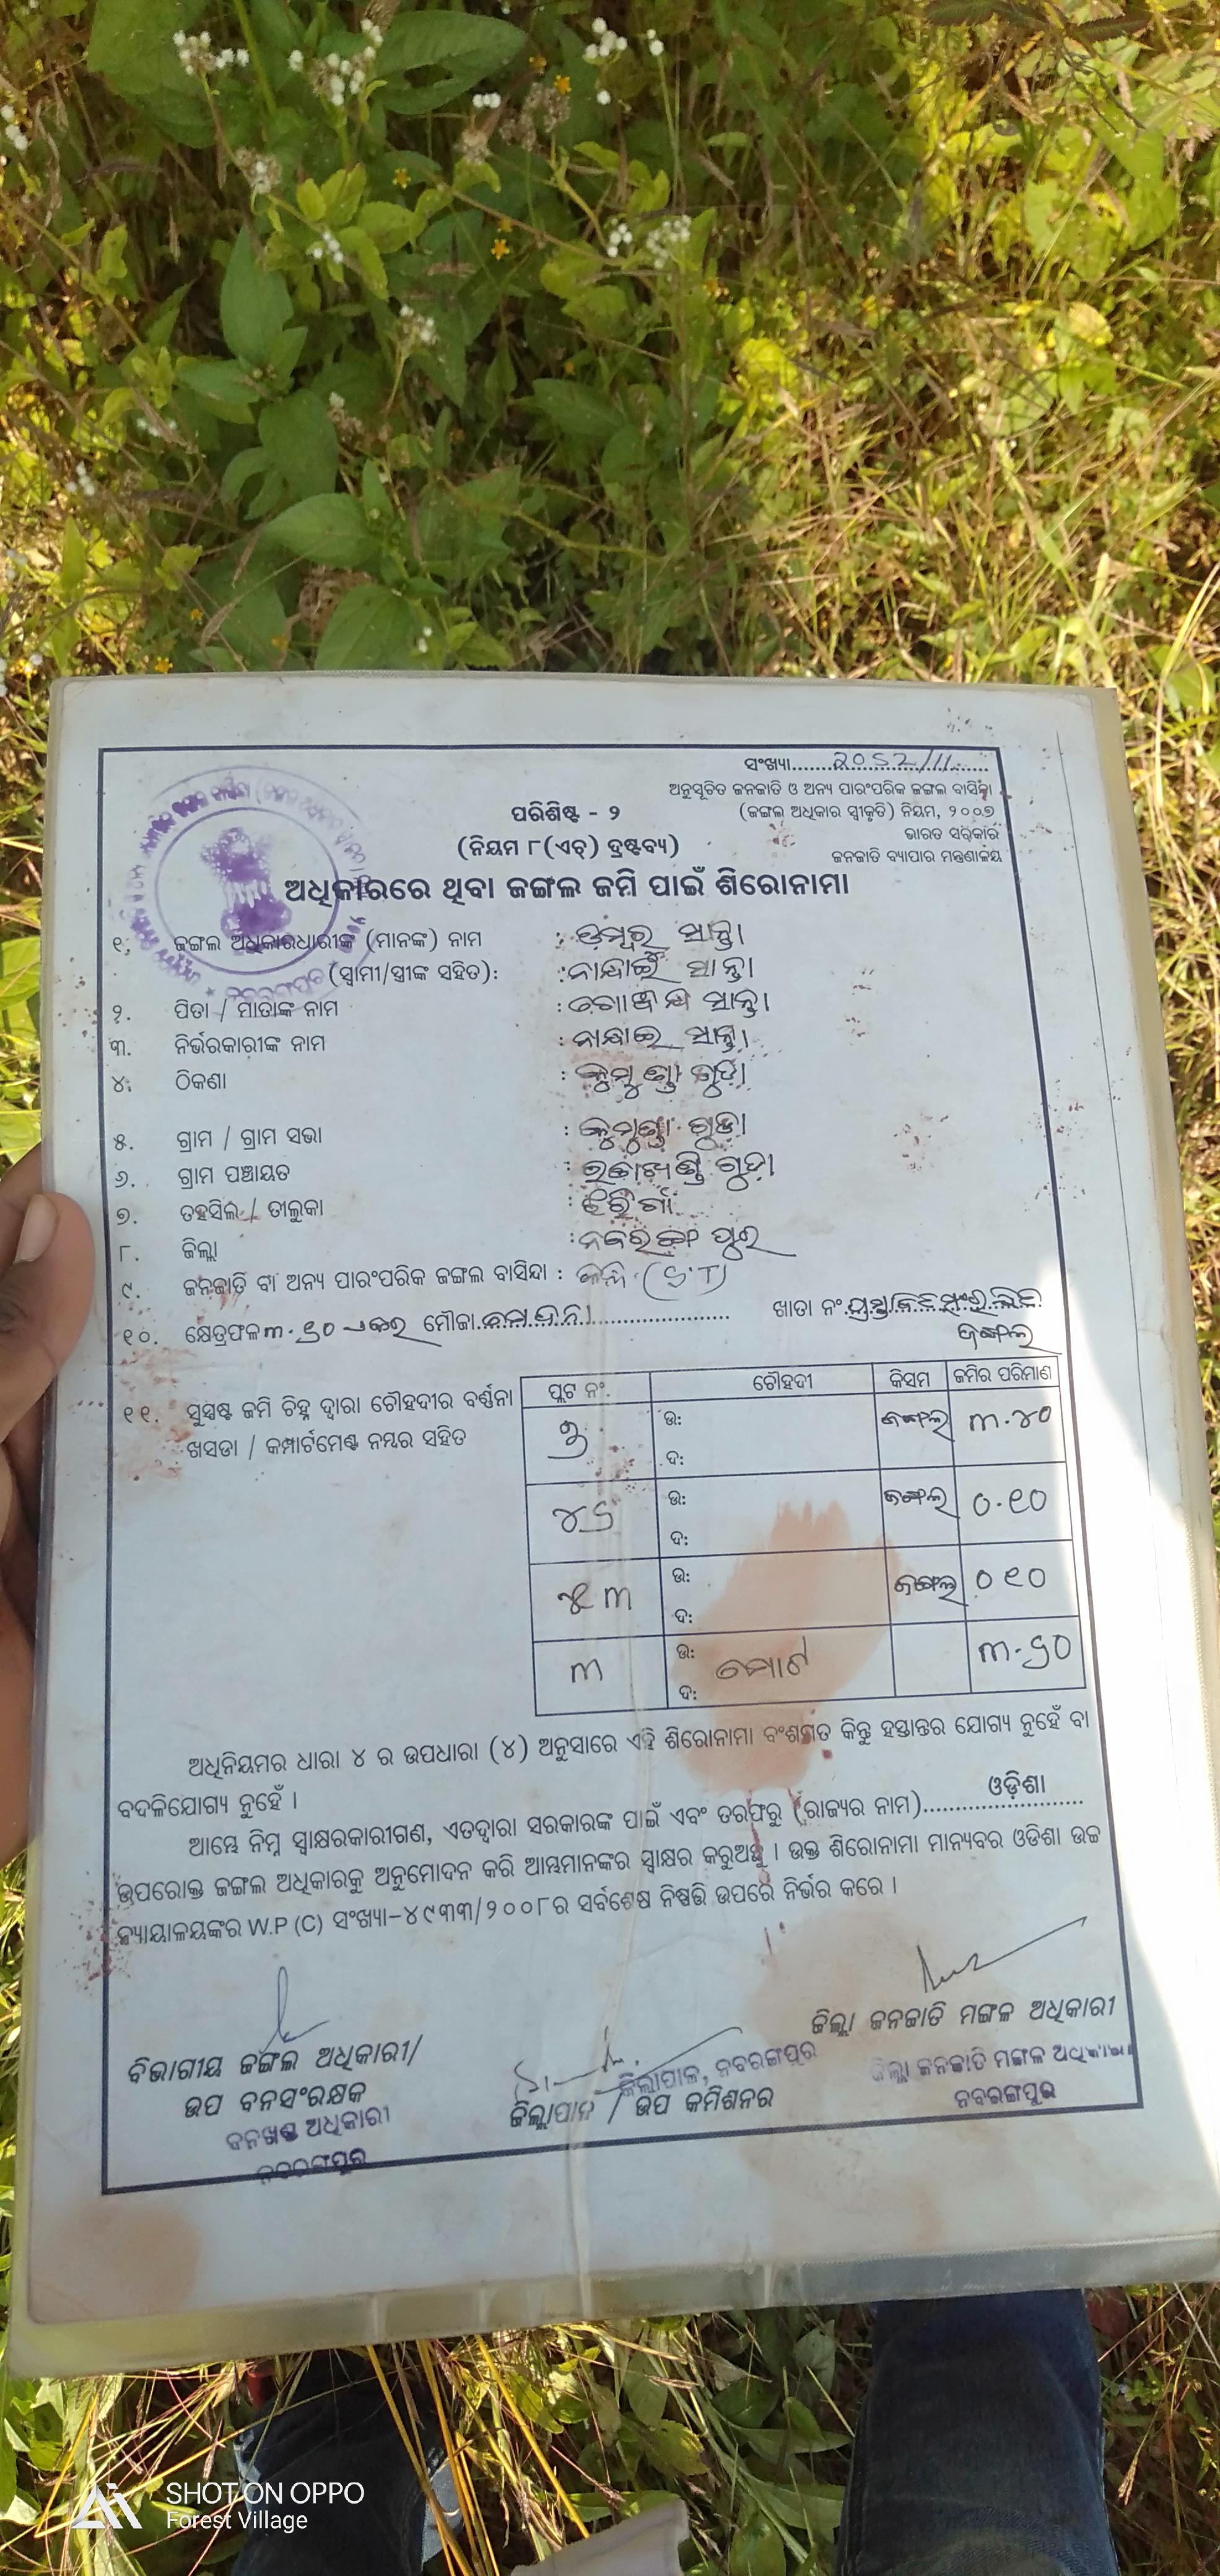 ସଂଖ୍ୟା.......2052/11.......
ଅନୁସୂଚିତ ଜନଜାତି ଓ ଅନ୍ୟ ପାରଂପରିକ ଜଙ୍ଗଲ ବାସିନ୍ଦା
(ଜଙ୍ଗଲ ଅଧିକାର ସ୍ୱୀକୃତି) ନିୟମ, ୨୦୦୭
ଭାରତ ସରକାର
ଜନଜାତି ବ୍ୟାପାର ମନ୍ତ୍ରଣାଳୟ
ପରିଶିଷ୍ଟ - ୨
(ନିୟମ ୮(ଏଚ୍) ଦ୍ରଷ୍ଟବ୍ୟ)
ଅଧିକାରରେ ଥିବା ଜଙ୍ଗଲ ଜମି ପାଇଁ ଶିରୋନାମା
୧. ଜଙ୍ଗଲ ଅଧିକାରଧାରୀଙ୍କ (ମାନଙ୍କ) ନାମ : ସାନ୍ତା
(ସ୍ୱାମୀ/ସ୍ତ୍ରୀଙ୍କ ସହିତ): ସାନ୍ତା
୨. ପିତା / ମାତାଙ୍କ ନାମ : ସାନ୍ତା
୩. ନିର୍ଭରକାରୀଙ୍କ ନାମ : ସାନ୍ତା
୪. ଠିକଣା : ଗୁଡା
୫. ଗ୍ରାମ / ଗ୍ରାମ ସଭା : ଗୁଡା
୬. ଗ୍ରାମ ପଞ୍ଚାୟତ : ଗୁଡା
୭. ତହସିଲ / ତାଲୁକା :
୮. ଜିଲ୍ଲା : ନବରଙ୍ଗପୁର
୯. ଜନଜାତି ବା ଅନ୍ୟ ପାରଂପରିକ ଜଙ୍ଗଲ ବାସିନ୍ଦା : (ST)
୧୦. କ୍ଷେତ୍ରଫଳ ୩.୬୦ ଏକର ମୌଜା ଖାତା ନଂ
ଜଙ୍ଗଲ
୧୧. ସୁସ୍ପଷ୍ଟ ଜମି ଚିହ୍ନ ଦ୍ୱାରା ଚୌହଦୀର ବର୍ଣ୍ଣନା
ଖସଡା / କମ୍ପାର୍ଟମେଣ୍ଟ ନମ୍ବର ସହିତ
ପ୍ଲଟ ନଂ. ଚୌହଦୀ କିସମ ଜମିର ପରିମାଣ
ଉ: ଜଙ୍ଗଲ ୩.୪୦
ଦ:
୪୬ ଉ: ଜଙ୍ଗଲ ୦.୧୦
ଦ:
୫୩ ଉ: ଜଙ୍ଗଲ ୦୧୦
ଦ:
୩ ଉ: ମୋଟ ୩.୬୦
ଦ:
ଅଧିନିୟମର ଧାରା ୪ ର ଉପଧାରା (୪) ଅନୁସାରେ ଏହି ଶିରୋନାମା ବଂଶଗତ କିନ୍ତୁ ହସ୍ତାନ୍ତର ଯୋଗ୍ୟ ନୁହେଁ ବା
ବଦଳିଯୋଗ୍ୟ ନୁହେଁ ।
ଆମ୍ଭେ ନିମ୍ନ ସ୍ୱାକ୍ଷରକାରୀଗଣ, ଏତଦ୍ୱାରା ସରକାରଙ୍କ ପାଇଁ ଏବଂ ତରଫରୁ (ରାଜ୍ୟର ନାମ).......ଓଡ଼ିଶା.......
ଉପରୋକ୍ତ ଜଙ୍ଗଲ ଅଧିକାରକୁ ଅନୁମୋଦନ କରି ଆମ୍ଭମାନଙ୍କର ସ୍ୱାକ୍ଷର କରୁଅଛୁ । ଉକ୍ତ ଶିରୋନାମା ମାନ୍ୟବର ଓଡିଶା ଉଚ୍ଚ
ନ୍ୟାୟାଳୟଙ୍କର W.P (C) ସଂଖ୍ୟା-୪୯୩୩/୨୦୦୮ର ସର୍ବଶେଷ ନିଷ୍ପତ୍ତି ଉପରେ ନିର୍ଭର କରେ ।
ଜିଲ୍ଲା ଜନଜାତି ମଙ୍ଗଳ ଅଧିକାରୀ
ଜିଲ୍ଲା ଜନଜାତି ମଙ୍ଗଳ ଅଧିକାରୀ
ନବରଙ୍ଗପୁର
ବିଭାଗୀୟ ଜଙ୍ଗଲ ଅଧିକାରୀ/
ଉପ ବନସଂରକ୍ଷକ
ବନଖଣ୍ଡ ଅଧିକାରୀ
ନବରଙ୍ଗପୁର
ଜିଲ୍ଲାପାଳ, ନବରଙ୍ଗପୁର
ଜିଲ୍ଲାପାଳ / ଉପ କମିଶନର
SHOT ON OPPO
Forest Village